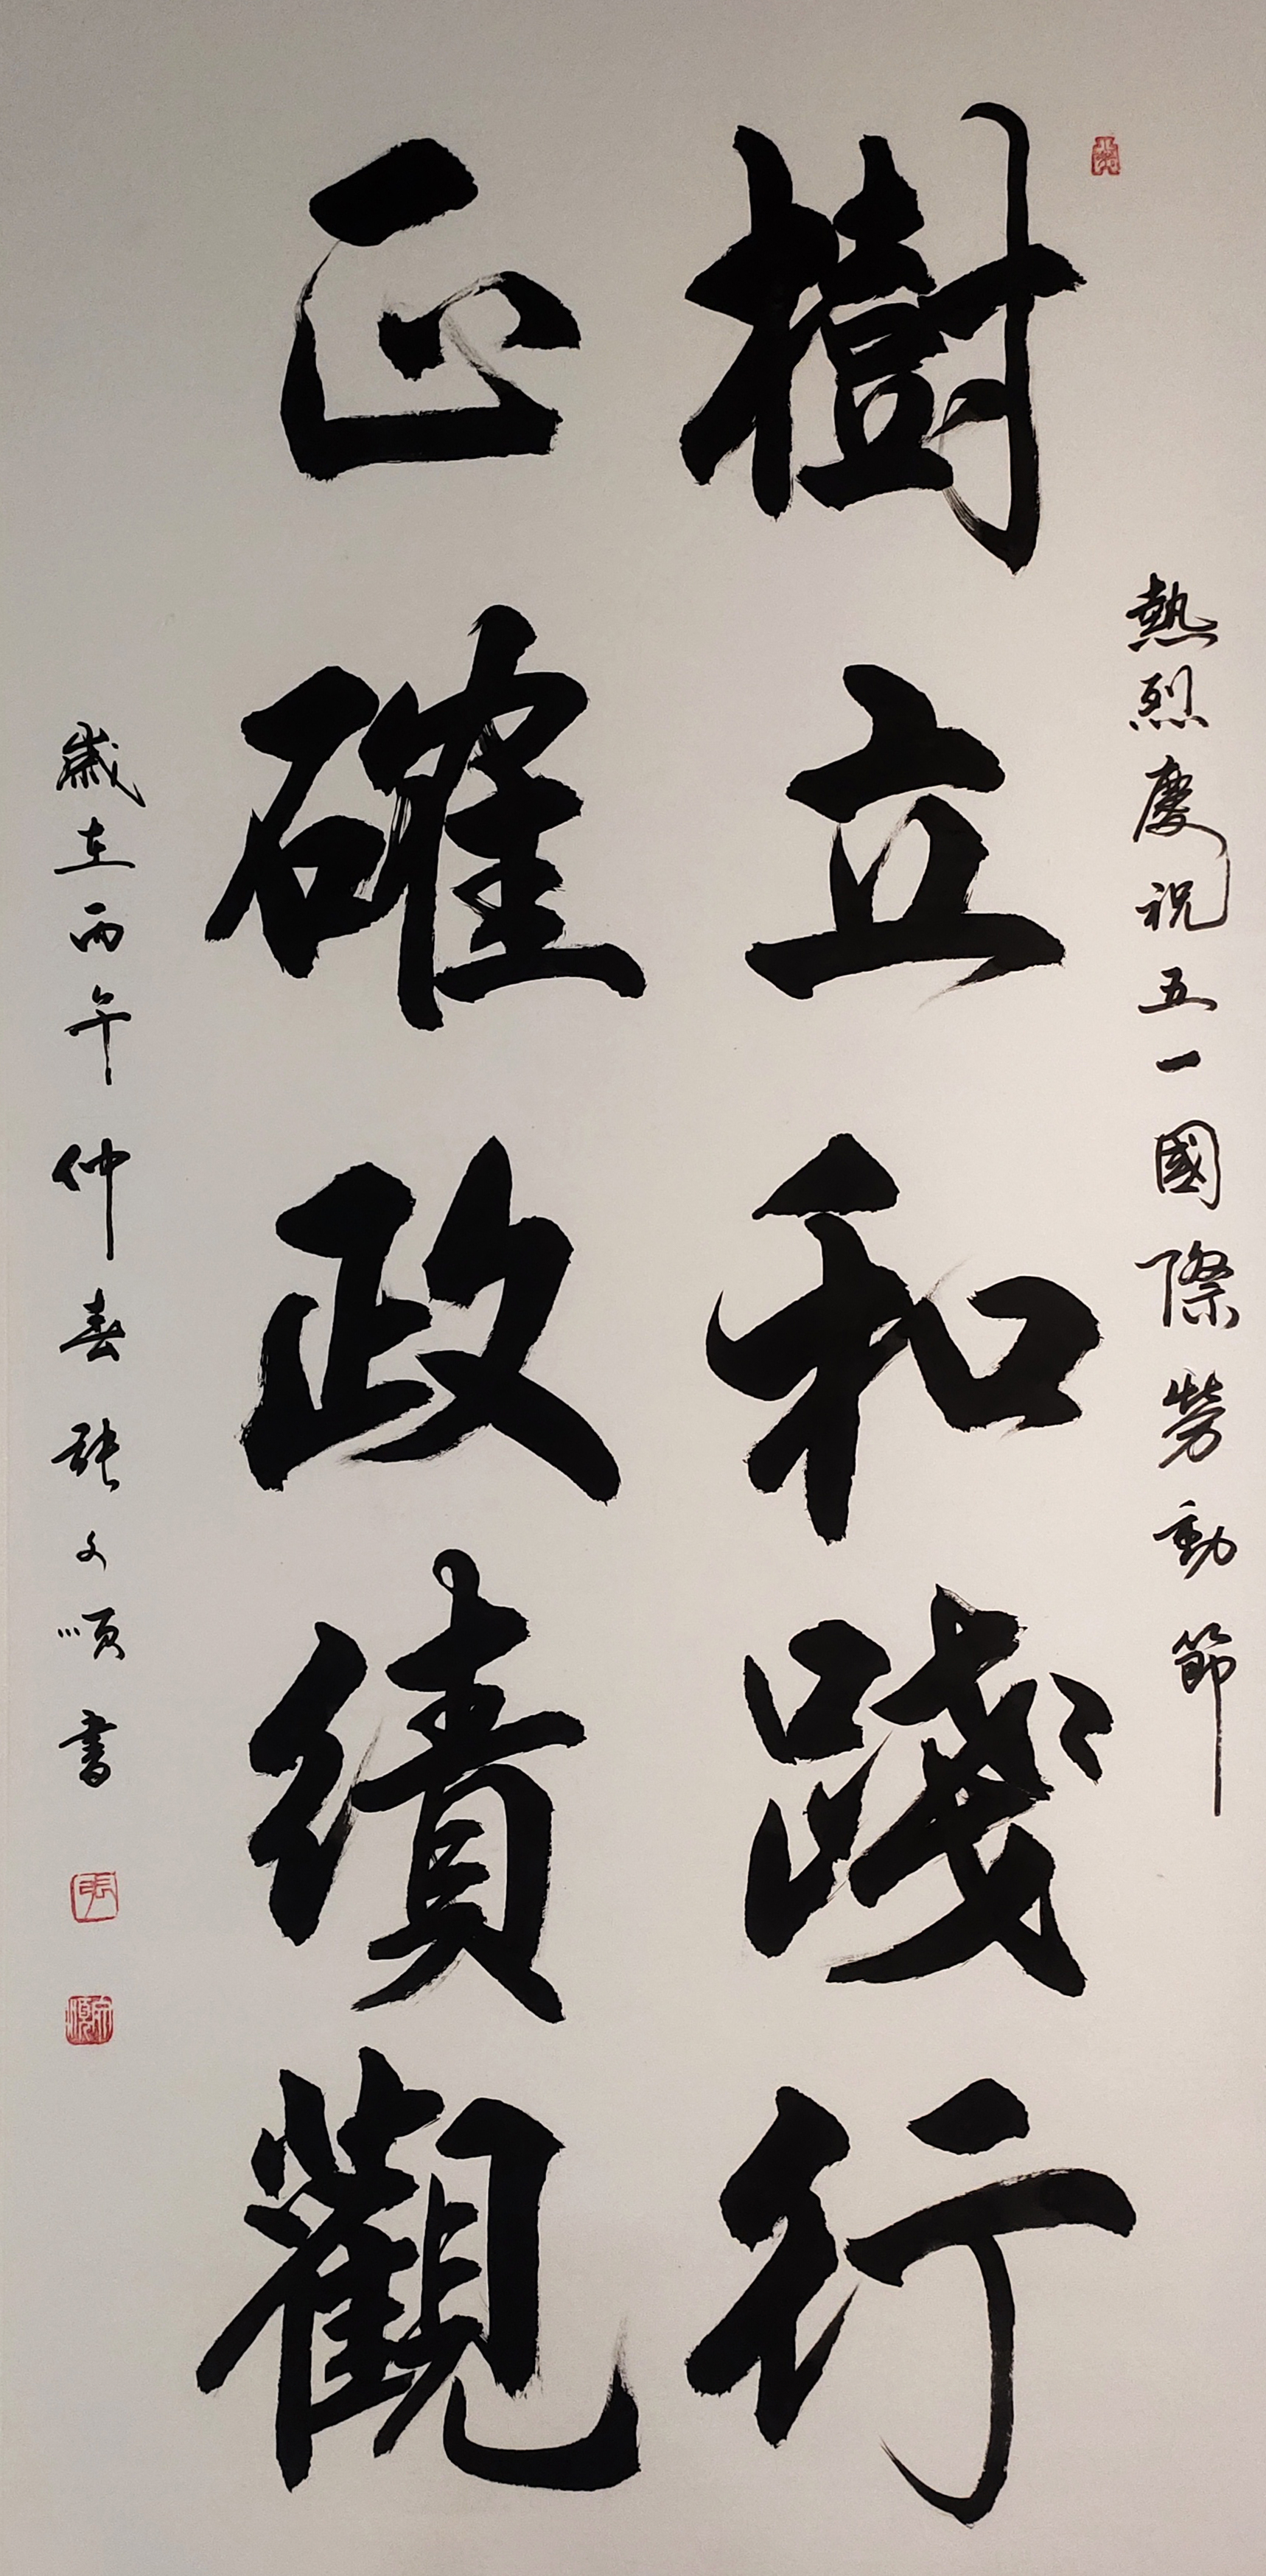 熱烈慶祝五一國際勞動節
樹立和踐行
正確政績觀
歲在丙午仲春張文順書
張